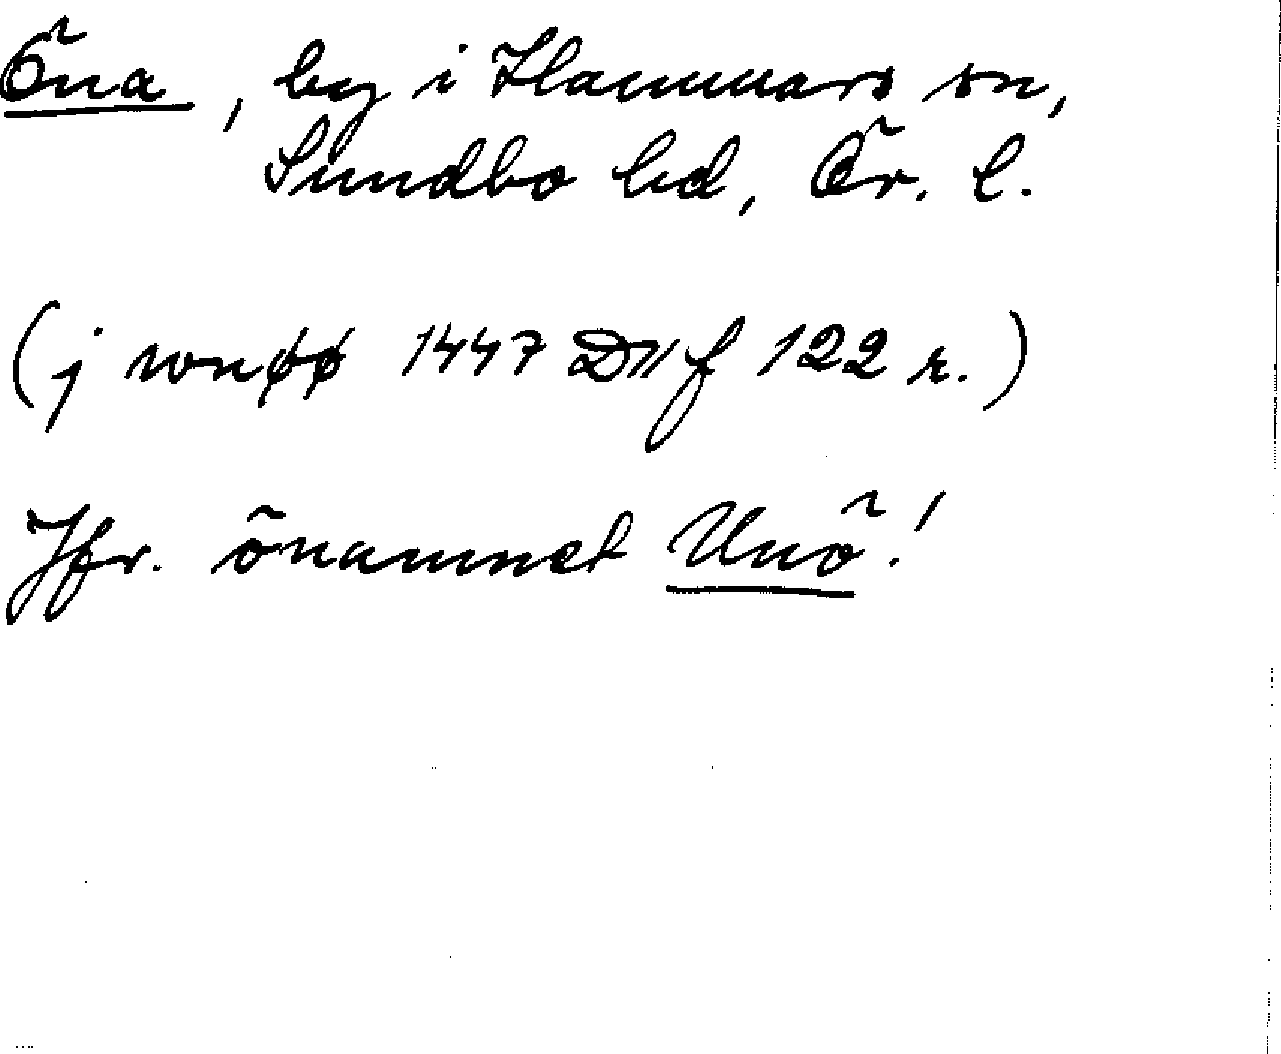 Öna, by i Hammars sn,
Sundbo hd, Ör. l.
(j wnøø 1447 D11 f 122 r.)
Jfr. önamnet Unö!